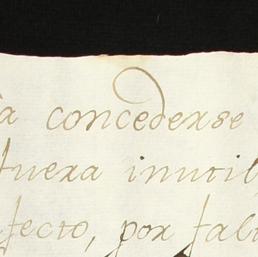 à concederse
fuera inutil
fecto, por fal